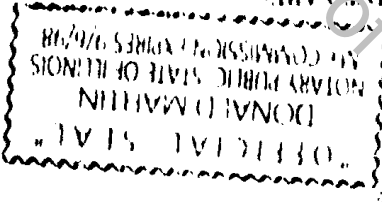 "OFFICIAL SEAL"
DONALD MARTIN
NOTARY PUBLIC STATE OF ILLINOIS
MY COMMISSION EXPIRES 9/6/98